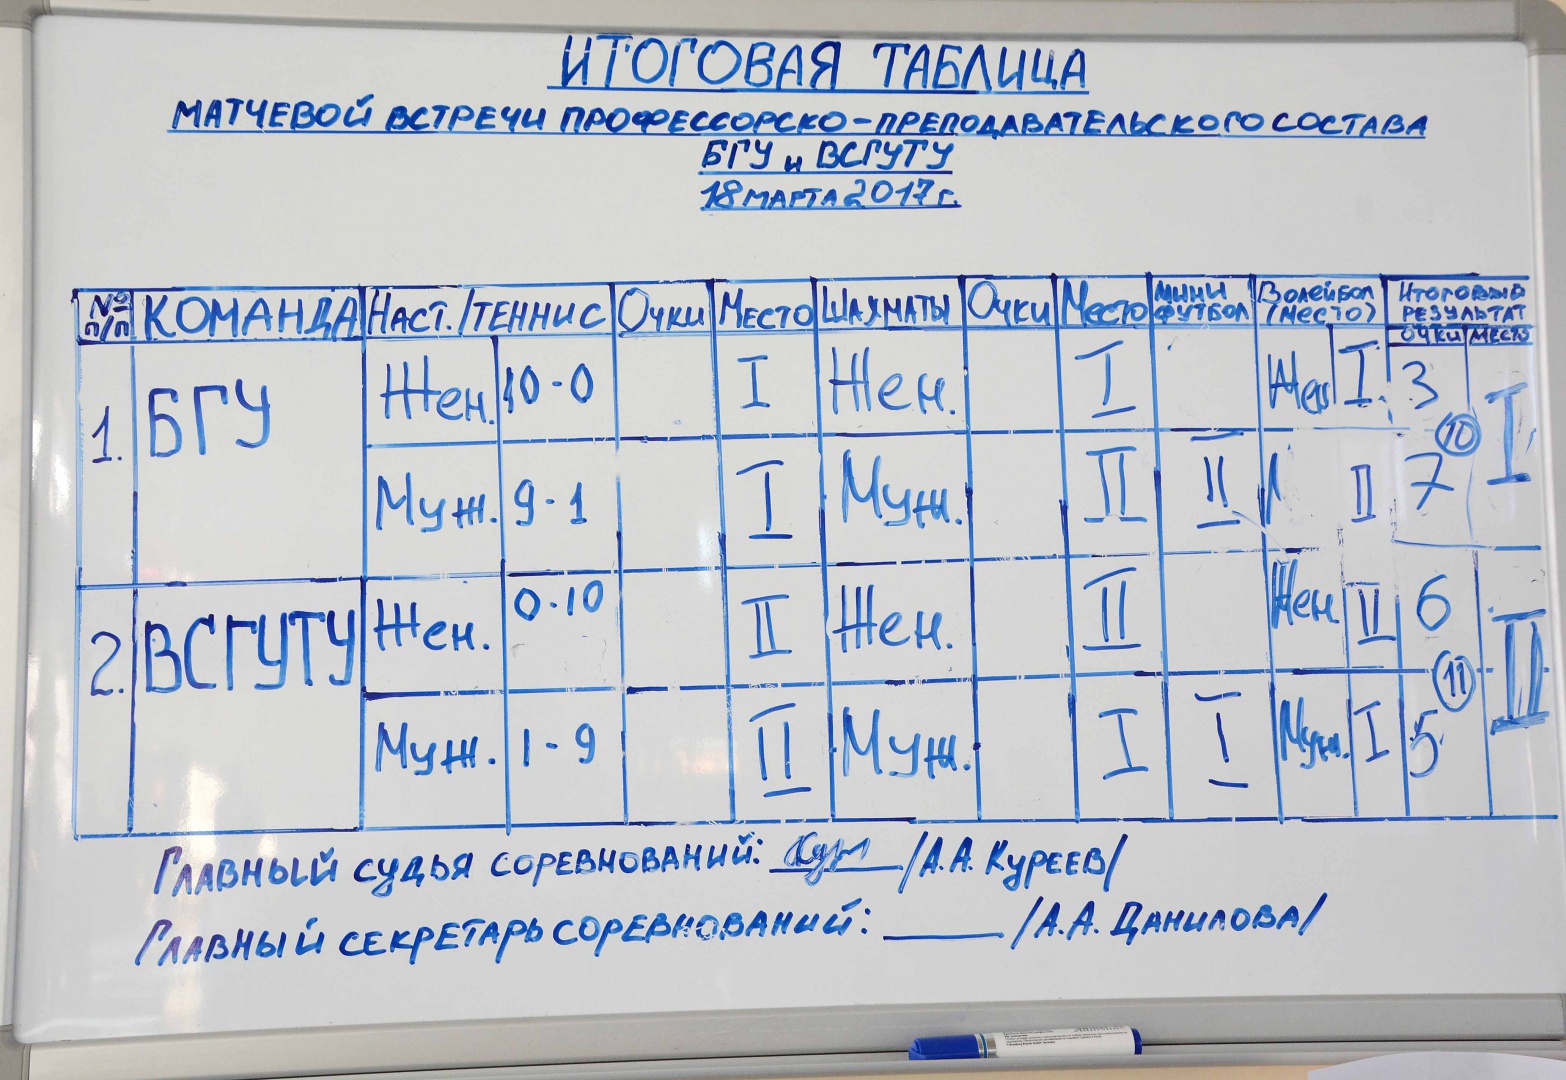 ИТОГОВАЯ ТАБЛИЦА
МАТЧЕВОЙ ВСТРЕЧИ ПРОФЕССОРСКО-ПРЕПОДАВАТЕЛЬСКОГО СОСТАВА
БГУ и ВСГУТУ
18 МАРТА 2017 г.
№ п/п КОМАНДА НАСТ./ТЕННИС ОЧКИ МЕСТО ШАХМАТЫ ОЧКИ МЕСТО МИНИ ФУТБОЛ ВОЛЕЙБОЛ (МЕСТО) ИТОГОВЫЙ РЕЗУЛЬТАТ
ОЧКИ МЕСТО
1. БГУ Жен. 10-0 I Жен. I Жен I 3 10 I
Муж. 9-1 I Муж. II II II 7
2. ВСГУТУ Жен. 0-10 II Жен. II Жен. II 6 11 II
Муж. 1-9 II Муж. I I Муж. I 5
ГЛАВНЫЙ СУДЬЯ СОРЕВНОВАНИЙ: /А.А. КУРЕЕВ/
ГЛАВНЫЙ СЕКРЕТАРЬ СОРЕВНОВАНИЙ: /А.А. ДАНИЛОВА/